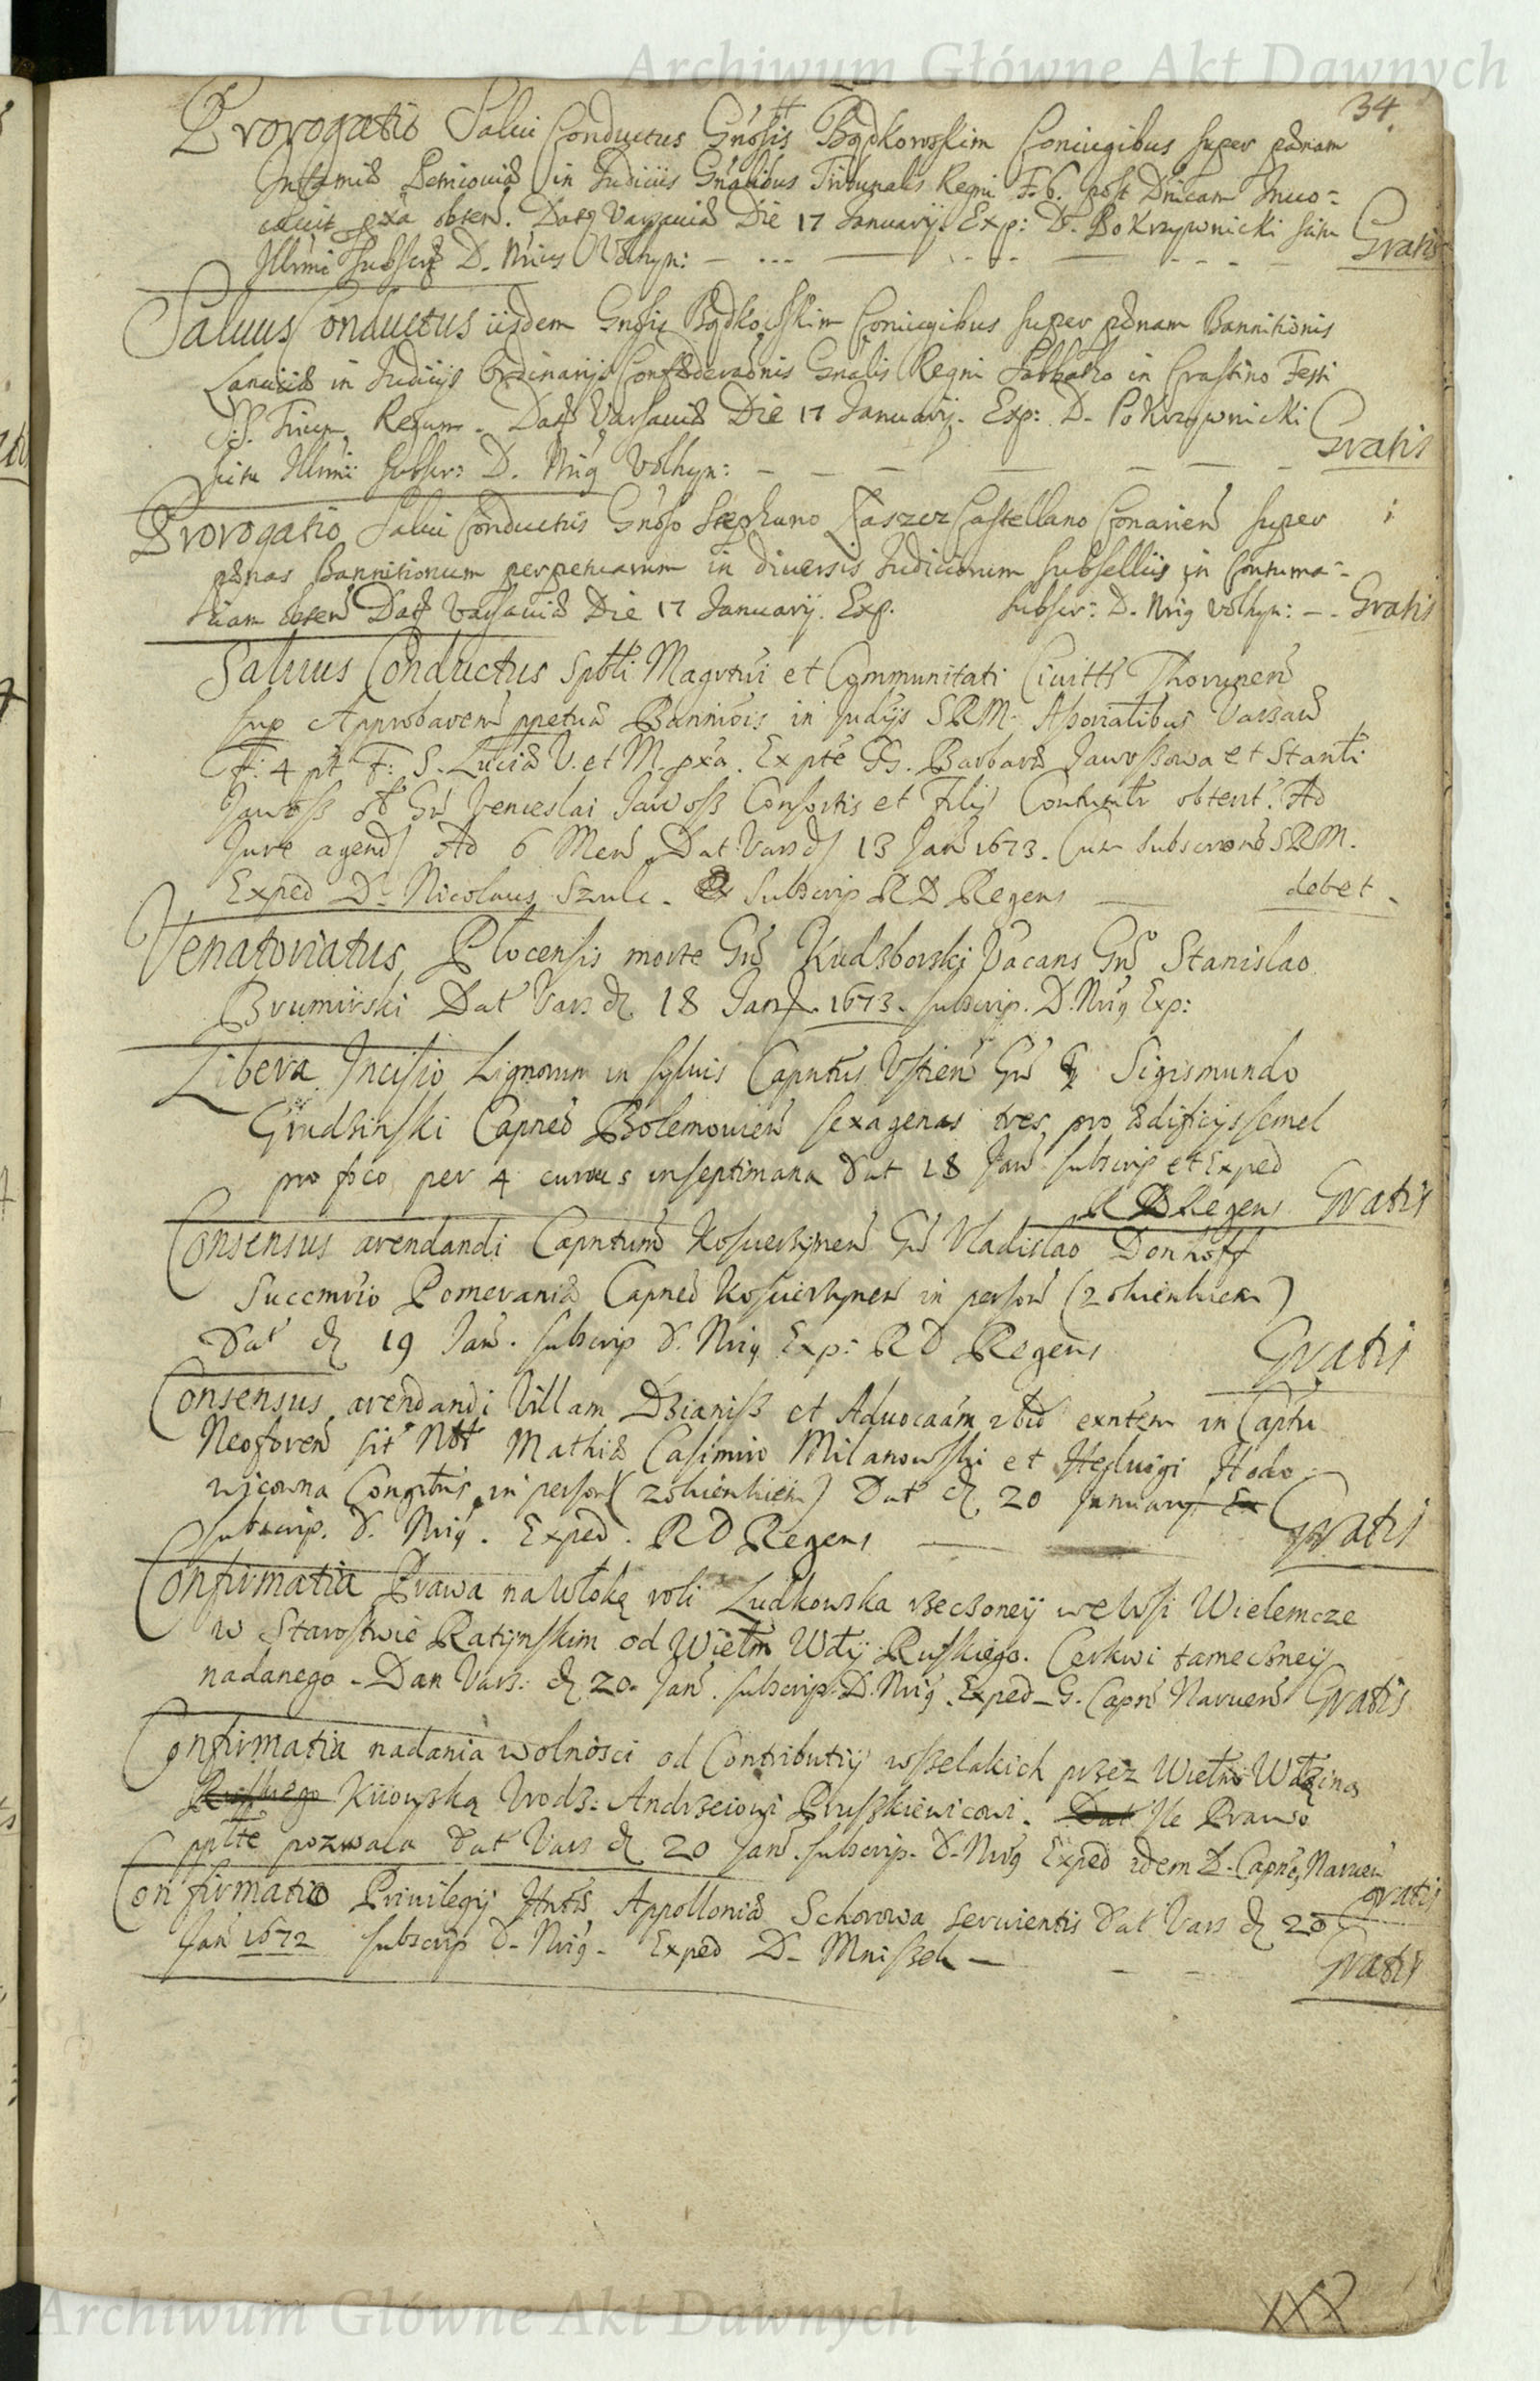 Archiwum Główne Akt Dawnych
34.
Prorogatio Salui Conductus Gnosis Bądkowskim Coniugibus super pœnam
Infamiæ in Iudiciis Gnalibus Tribunalis Regni F. 6. post Dnicam Inuo-
cauit pxa obten. Datt Varsauiæ Die 17 January. Exp: D. Pokrzywnicki scitu
Illrmi Subscr D. Nrius Volhyn: Gratis
Saluus Conductus iisdem Gnosis Bądkowskim Coniugibus super pœnam Bannitionis
in Iudicijs Ordinarijs Confœderaonis Gnalis Regni Sabbatho in Crastino Festi
S.S. Trium Regum. Datt Varsauiæ Die 17 Januarij. Exp: D. Pokrzywnicki
scitu Illrmi Subscr: D. Nrig Volhyn: Gratis
Prorogatio Salui Conductus Gnoso Stephano Kaszez Castellano Conarien super
pœnas Bannitionum perpetuarum in diuersis Iudiciorum subselliis in Contuma-
ciam obten Datt Varsauiæ Die 17 January. Exp. subscr: D. Nrig Volhyn: Gratis
Saluus Conductus Sptli Magrtui et Communitati Ciuitts Thorunen
sup Approbaoem ppetuæ Bannitois in Judijs SRM. Assorialibus Varsau
F: 4 pt F: S. Luciæ V. et M. pxa. Ex pte GG. Barbaræ Jawoszowa et Stanli
Jawosz Gn Venceslai Jawosz Consortis et Filij obtent. Ad
Jure agend Ad 6 Men Dat Vars d 13 Jan 1673. Cum Subscrione SRM.
Exped D. Nicolaus Szulc. Subscrip RD Regens debet.
Venatoriatus Plocensis morte Gn Kudzborski Vacans Gn Stanislao
Brumirski Dat Vars d. 18 Jan. 1673. subscrip. D. Nrig Exp:
Libera Incisio Lignorum in syluis Capntus Vstien Gn Sigismundo
Grudzinski Capneo Bolemouien sexagenas tres pro ædificijs semel
pro foco per 4 currus in septimana Dat 18 Jan subscrip et Exped
RD Regens Gratis
Consensus arendandi Capntum Kosuerzynen Gn Vladislao Donhoff
Succmrio Pomeraniæ Capneo Kosuierzynen in person (zohienhiem)
Dat d 19 Jan. subscrip D. Nrig Exp: RD Regens Gratis
Consensus arendandi Villam Dzianisz et Aduocaam ibid exntem in Captu
Neoforen sit Mathiæ Casimiro Milanowski et Heduigi Hodo
wicowna Congtus in person (zohienhiem) Dat d. 20 January Ex
subscrip. D. Nrig. Exped. RD Regens Gratis
Confirmatia Prawa na Włokę roli Ludkowska rzeczoneÿ we Wsi Wielemcze
w Starostwie Ratÿnskim od Wielm Wdÿ Ruskiego. Cerkwi tamecznej
nadanego. Dan Vars: d. 20. Jan. subscrip. D. Nrig. Exped. G. Capn Naruen Gratis
Confirmatia nadania wolnosci od Contributiÿ wszelakich przez Wielm Wdzina
Ruskiego Kiiowską Vrodz. Andrzeiowi Pruszkiewicowi. Dat Ile Prawo
pplte pozwala Dat Vars d 20 Jan. subscrip. D. Nrig Exped idem D. Capn Naruen
gratis
Confirmatio Priuilegij Appolloniæ Schorowa seruientis Dat Vars d 20
Jan 1672 subscrip D. Nrig. Exped D. Mniszek Gratis
XXX
Archiwum Główne Akt Dawnych